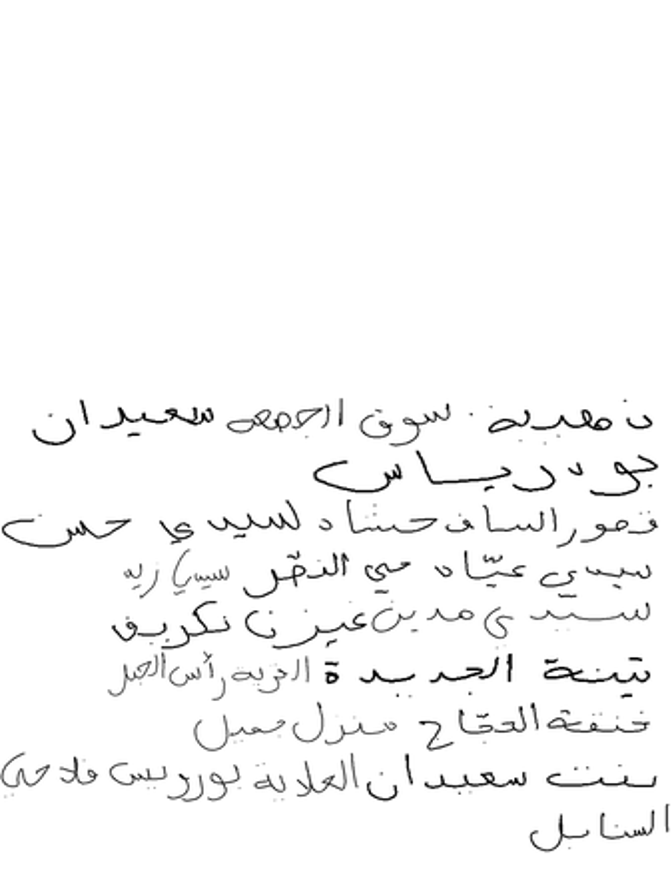 مهدية سوق الجمعه سعيدان
بو درياس
قصور الساف حشاد سيدي حسن
سيدي عيّاد حي النصر سيدي زيد
سيدي مدين تكريف
تينجة الجديدة القرية رأس الجبل
خنقة الحجّاج منزل جميل
بنت سعيدان العلاية بورويس
السنابل